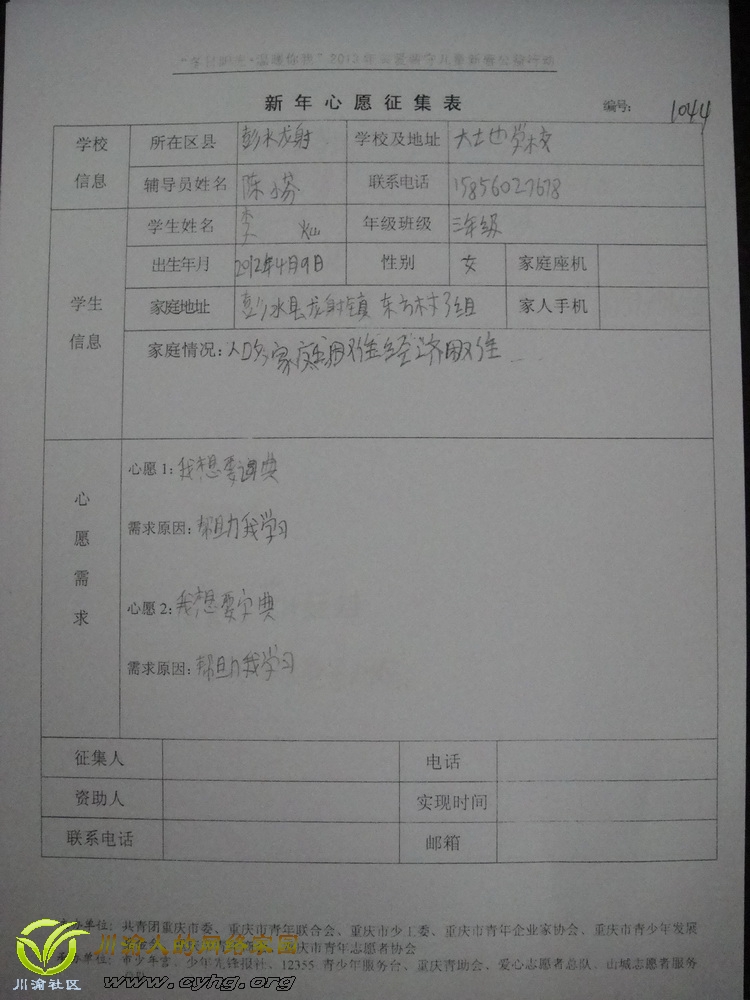 "冬日阳光·温暖你我"2013年关爱留守儿童新春公益行动
新年心愿征集表
编号: 1044
学校信息
所在区县 彭水龙射 学校及地址 大土也学校
辅导员姓名 陈 芬 联系电话 15856027678
学生信息
学生姓名 李 灿 年级班级 三年级
出生年月 2012年4月9日 性别 女 家庭座机
家庭地址 彭水县龙射镇 东方村3组 家人手机
家庭情况: 人口多家庭困难经济困难
心愿需求
心愿1: 我想要词典
需求原因: 帮助我学习
心愿2: 我想要字典
需求原因: 帮助我学习
征集人 电话
资助人 实现时间
联系电话 邮箱
单位: 共青团重庆市委、重庆市青年联合会、重庆市少工委、重庆市青年企业家协会、重庆市青少年发展
重庆市青年志愿者协会
单位: 市少年宫、少年先锋报社、12355 青少年服务台、重庆青助会、爱心志愿者总队、山城志愿者服务
川渝社区
川渝人的网络家园
www.cyhg.org